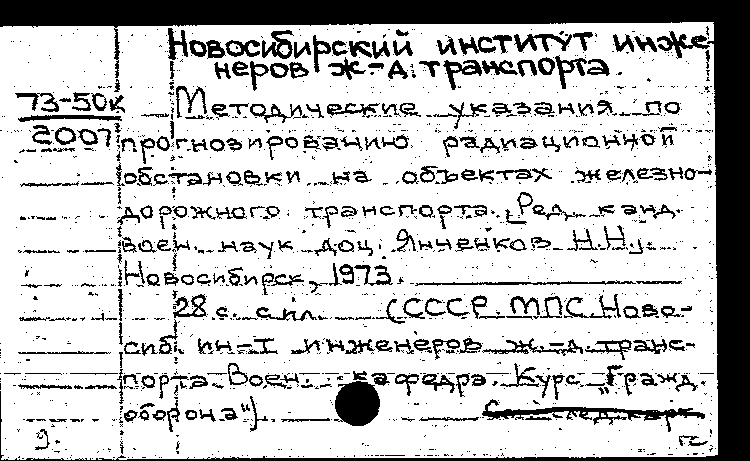 Новосибирский институт инже-
неров ж.-д. транспорта.
73-50к
2007
Методические указания по
прогнозированию радиационной
обстановки на объектах железно-
дорожного транспорта. Ред. канд.
воен. наук доц. Янченков Н.Н.
Новосибирск, 1973.
28 с. с ил. (СССР. МПС. Ново-
сиб. ин-т инженеров ж.-д. транс-
порта. Воен. кафедра. Курс „Гражд.
оборона“).
См. след. карт.
9.